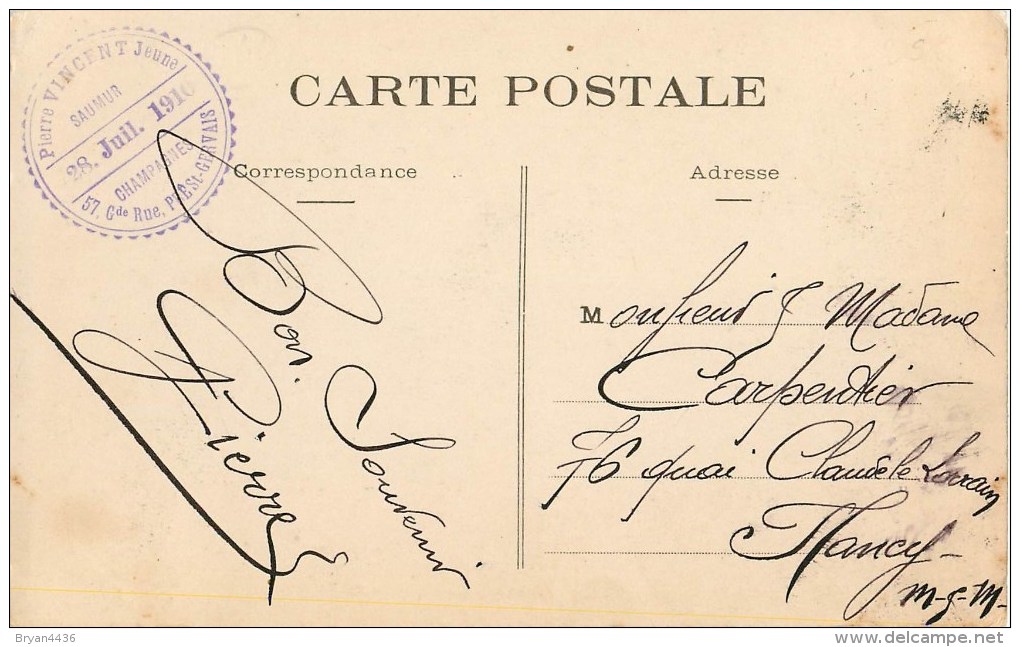 Pierre VINCENT Jeune
SAUMUR
28. Juil. 1910
CHAMPAGNES
57, Gde Rue, PRÉ St-GERVAIS
CARTE POSTALE
Correspondance
Adresse
Bon Souvenir
Pierre
Monsieur & Madame
Carpentier
76 quai Claude le Lorrain
Nancy
M-&-M-
Bryan4436
delcampe.net